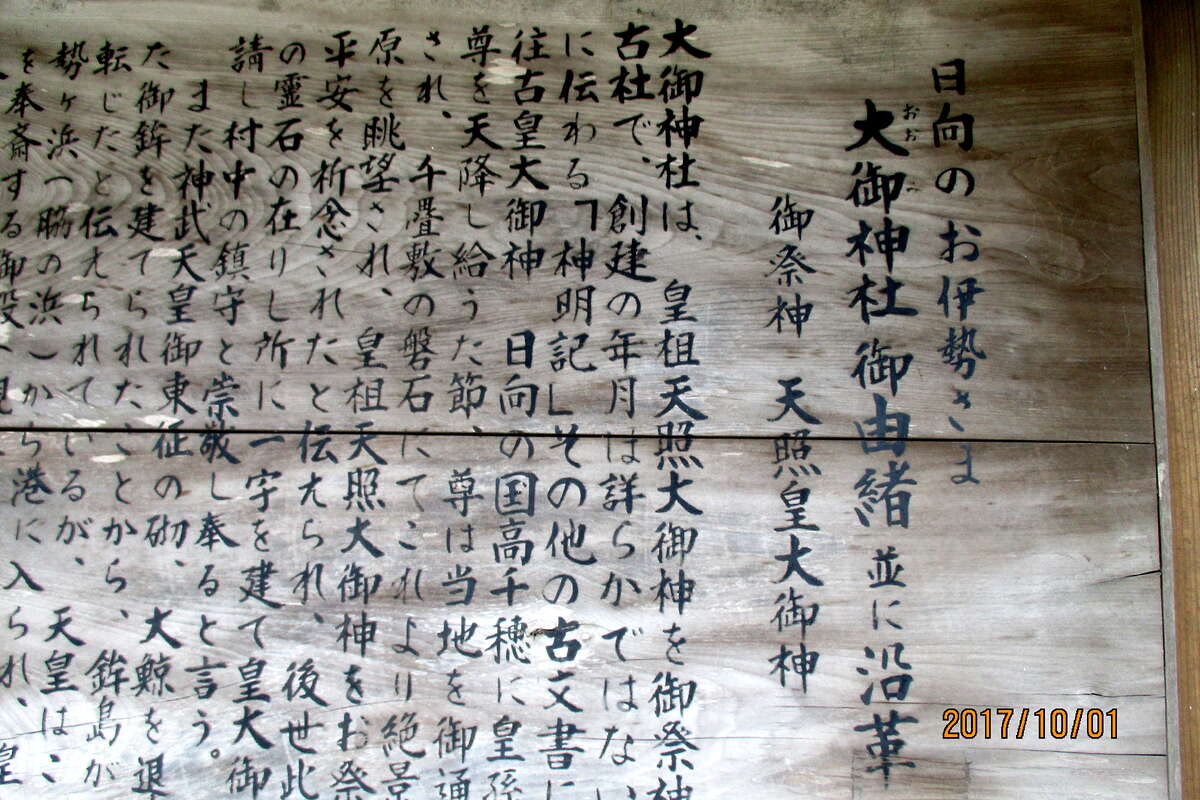 日向のお伊勢さま
大御神社御由緒 並に沿革
おお み
御祭神 天照皇大御神
大御神社は、皇祖天照大御神を御祭神
古社で、創建の年月は詳らかではない
に伝わる「神明記」その他の古文書に
往古皇大御神 日向の国高千穂に皇孫
尊を天降し給うた節、尊は当地を御通
され、千畳敷の磐石にてこれより絶景
原を眺望され、皇祖天照大御神をお祭
平安を祈念されたと伝えられ、後世此
の霊石の在りし所に一宇を建て皇大御
請し村中の鎮守と崇敬し奉ると言う。
また神武天皇御東征の砌、大鯨を退
た御鉾を建てられたことから、鉾島が
転じたと伝えられているが、天皇はこ
勢ヶ浜(脇の浜)から港に入られ、皇
を奉斎する御殿
2017/10/01